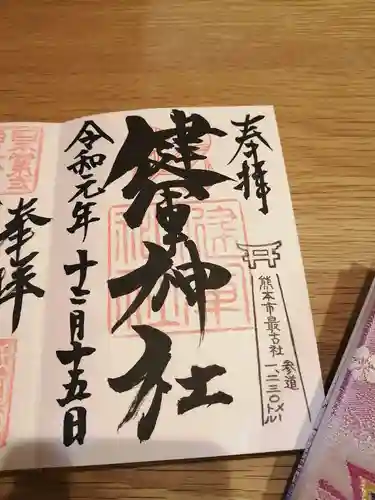 奉拝
健軍神社
令和元年 十二月十五日
熊本市最古社
参道
一、二三〇メートル
奉拝